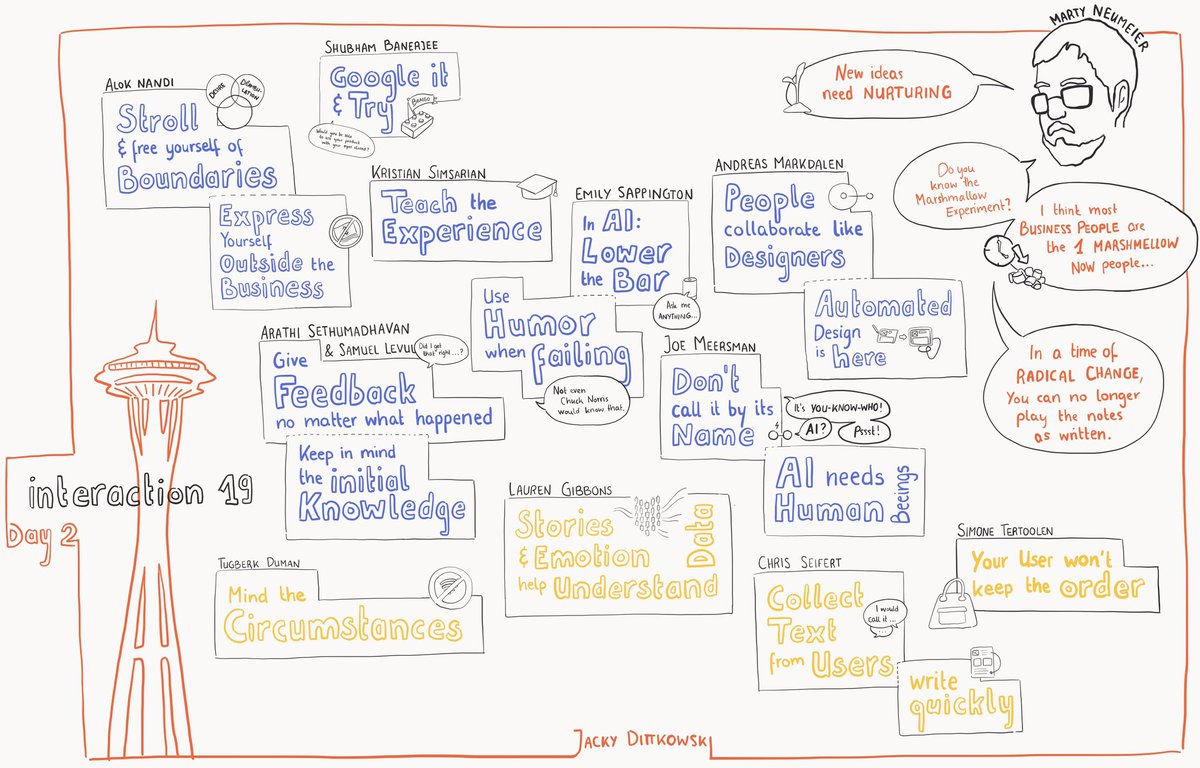 MARTY NEUMEIER
New ideas
need NURTURING
Do you
know the
Marshmallow
Experiment?
I think most
BUSINESS PEOPLE are
the 1 MARSHMELLOW
NOW people...
In a time of
RADICAL CHANGE,
You can no longer
play the notes
as written.
SHUBHAM BANERJEE
Google it
& Try
BANGO
Would you be able
to use your product
with your eyes closed?
ALOK NANDI
DESIRE
Stroll
& free yourself of
Boundaries
Express
Yourself
Outside the
Business
KRISTIAN SIMSARIAN
Teach the
Experience
EMILY SAPPINGTON
In AI:
Lower
the Bar
Ask me
ANYTHING...
Use
Humor
when failing
Not even
Chuck Norris
would know that.
ANDREAS MARKDALEN
People
collaborate like
Designers
Automated
Design
is here
ARATHI SETHUMADHAVAN
& SAMUEL LEVUL
Did I get
that right...?
Give
Feedback
no matter what happened
Keep in mind
the initial
Knowledge
JOE MEERSMAN
Don't
call it by its
Name
It's YOU-KNOW-WHO!
AI?
Pssst!
AI needs
Human Beeings
interaction 19
Day 2
LAUREN GIBBONS
Stories
& Emotion
help Understand
Data
TUGBERK DUMAN
Mind the
Circumstances
CHRIS SEIFERT
Collect
Text
from Users
I would
call it...
write
quickly
SIMONE TERTOOLEN
Your User won't
keep the order
JACKY DITTKOWSKI